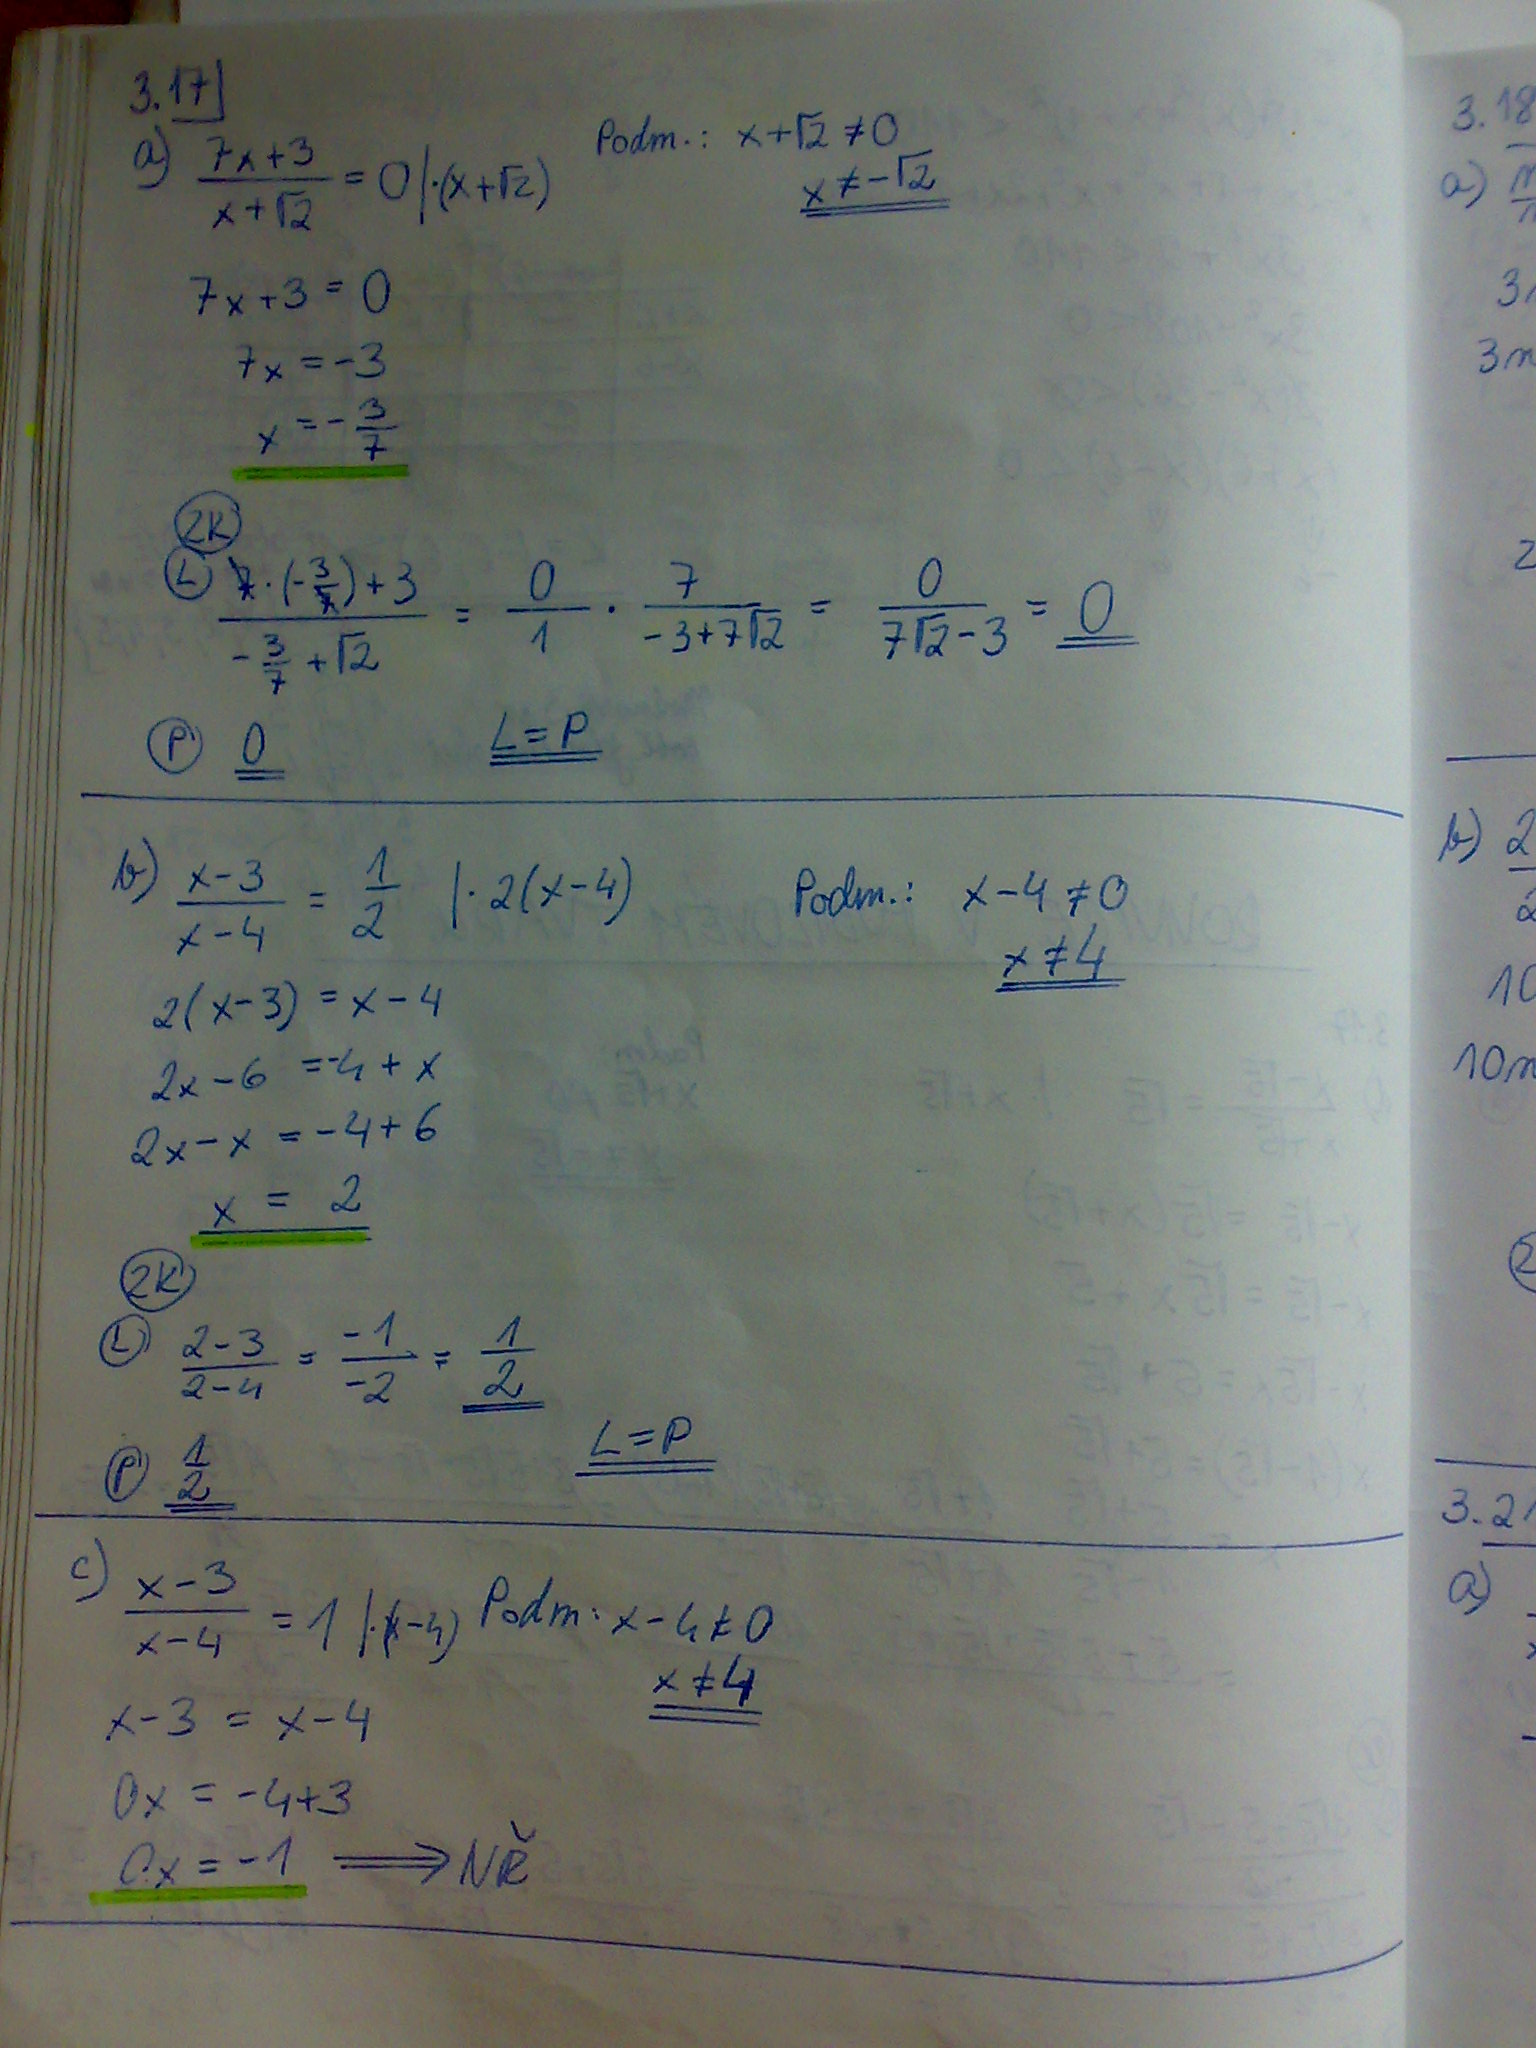 3.17
a) (7x+3)/(x+√2) = 0 |·(x+√2)
Podm.: x+√2 ≠ 0
x ≠ -√2
7x+3 = 0
7x = -3
x = -3/7
ZK
L (7·(-3/7)+3)/(-3/7+√2) = 0/1 · 7/(-3+7√2) = 0/(7√2-3) = 0
P 0
L=P
b) (x-3)/(x-4) = 1/2 |·2(x-4)
Podm.: x-4 ≠ 0
x ≠ 4
2(x-3) = x-4
2x-6 = -4+x
2x-x = -4+6
x = 2
ZK
L (2-3)/(2-4) = -1/-2 = 1/2
P 1/2
L=P
c) (x-3)/(x-4) = 1 |·(x-4)
Podm: x-4 ≠ 0
x ≠ 4
x-3 = x-4
0x = -4+3
0x = -1 ⟹ NŘ
3.18
a)
b)
10
3.21
a)